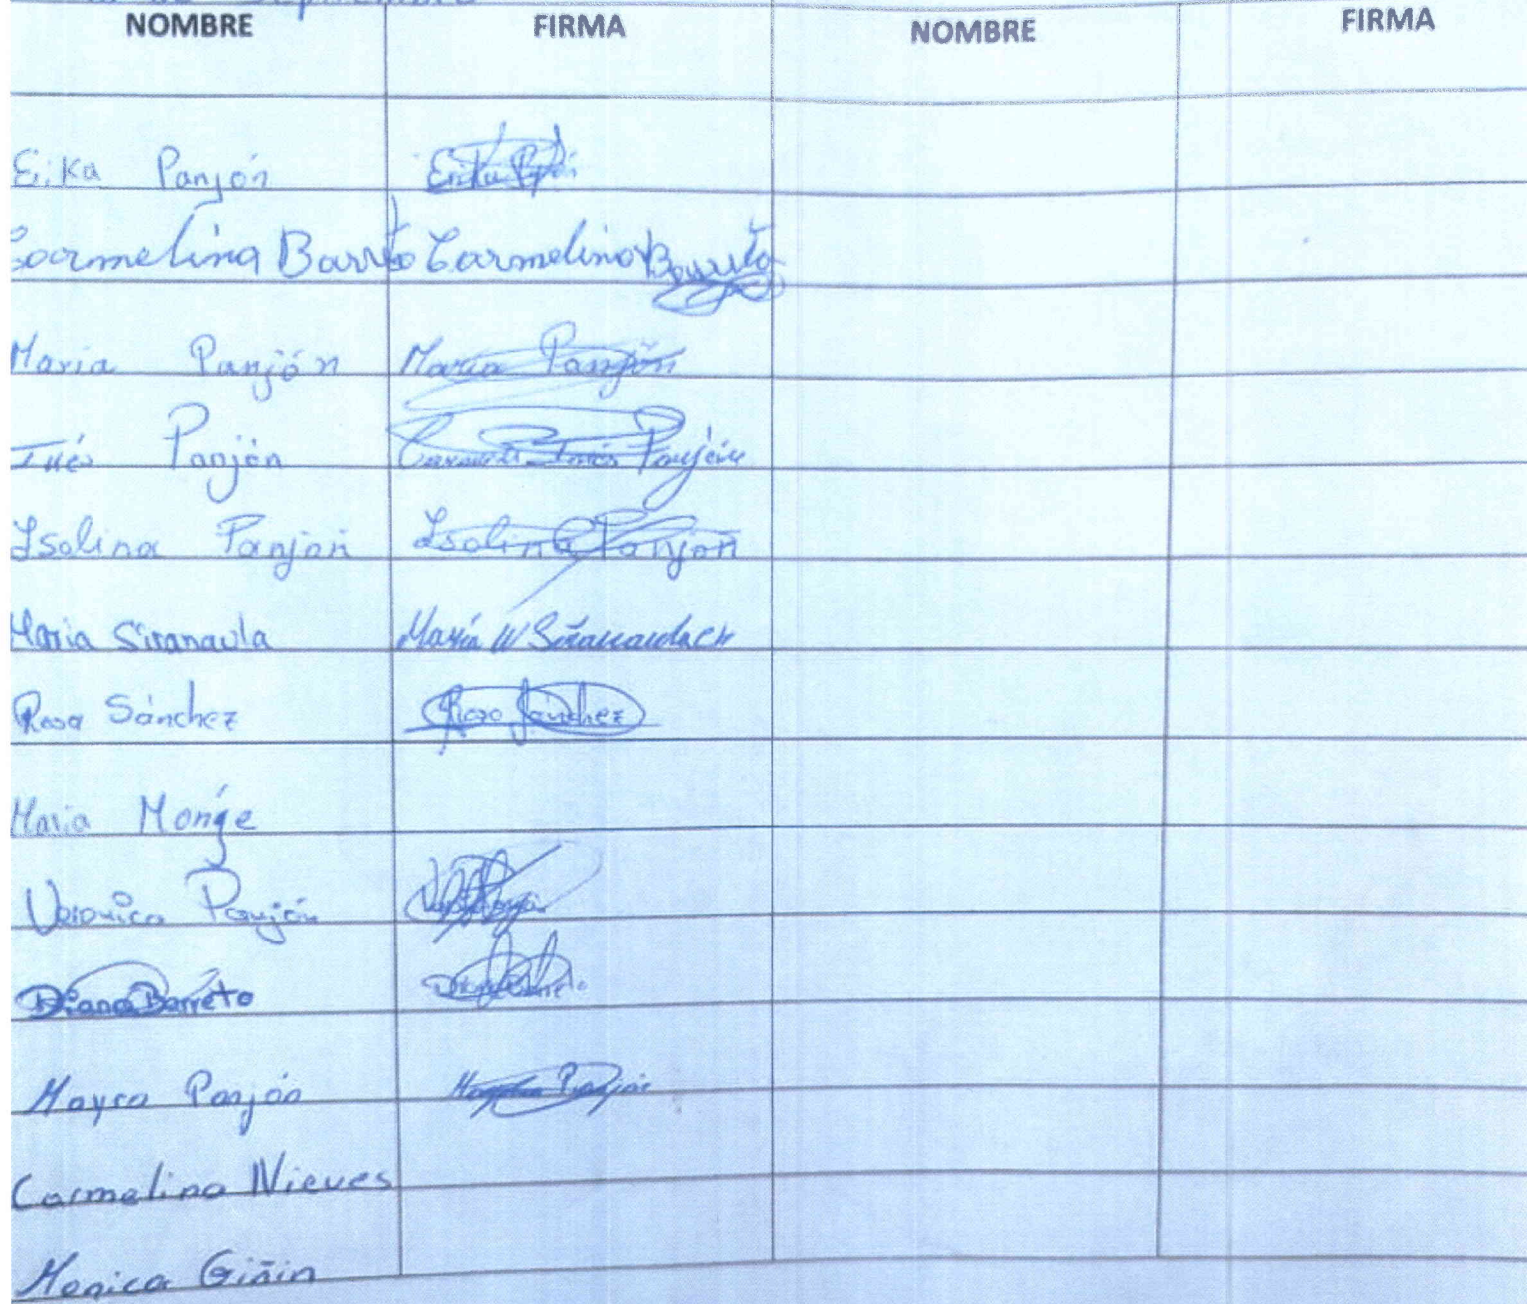 de Septiembre
NOMBRE FIRMA NOMBRE FIRMA
Erika Panjón Erika
Carmelina Barreto Carmelina Barreto
Maria Panjón Maria Panjón
Inés Panjón Inés Panjón
Isolina Panjon Isolina Panjon
Maria Siranaula María
Rosa Sánchez Rosa Sánchez
Maria Monge
Veronica Panjón
Diana Barreto
Mayra Panjón Panjón
Carmelina Nieves
Monica Giñin